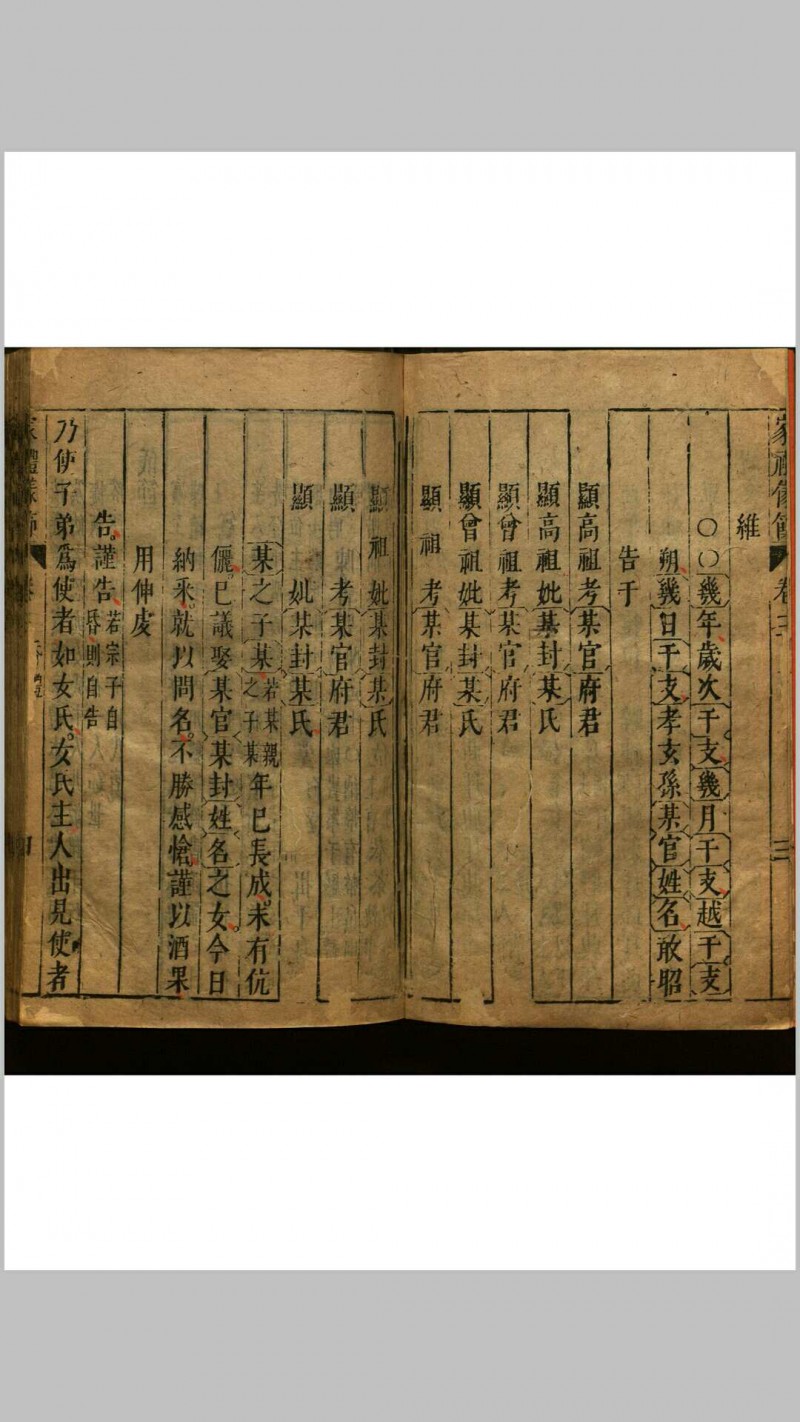 家禮儀節 卷三 三
維
〇〇幾年歲次干支幾月干支越干支
朔幾日干支孝玄孫某官姓名敢昭
告于
顯高祖考某官府君
顯高祖妣某封某氏
顯曾祖考某官府君
顯曾祖妣某封某氏
顯祖考某官府君
顯祖妣某封某氏
顯考某官府君
顯妣某封某氏
某之子某若某親之子某年已長成未有伉
儷已議娶某官某封姓名之女今日
納采就以問名不勝感愴謹以酒果
用伸虔
告謹告若宗子自昏則自告
乃使子弟爲使者如女氏女氏主人出見使者
家禮儀節